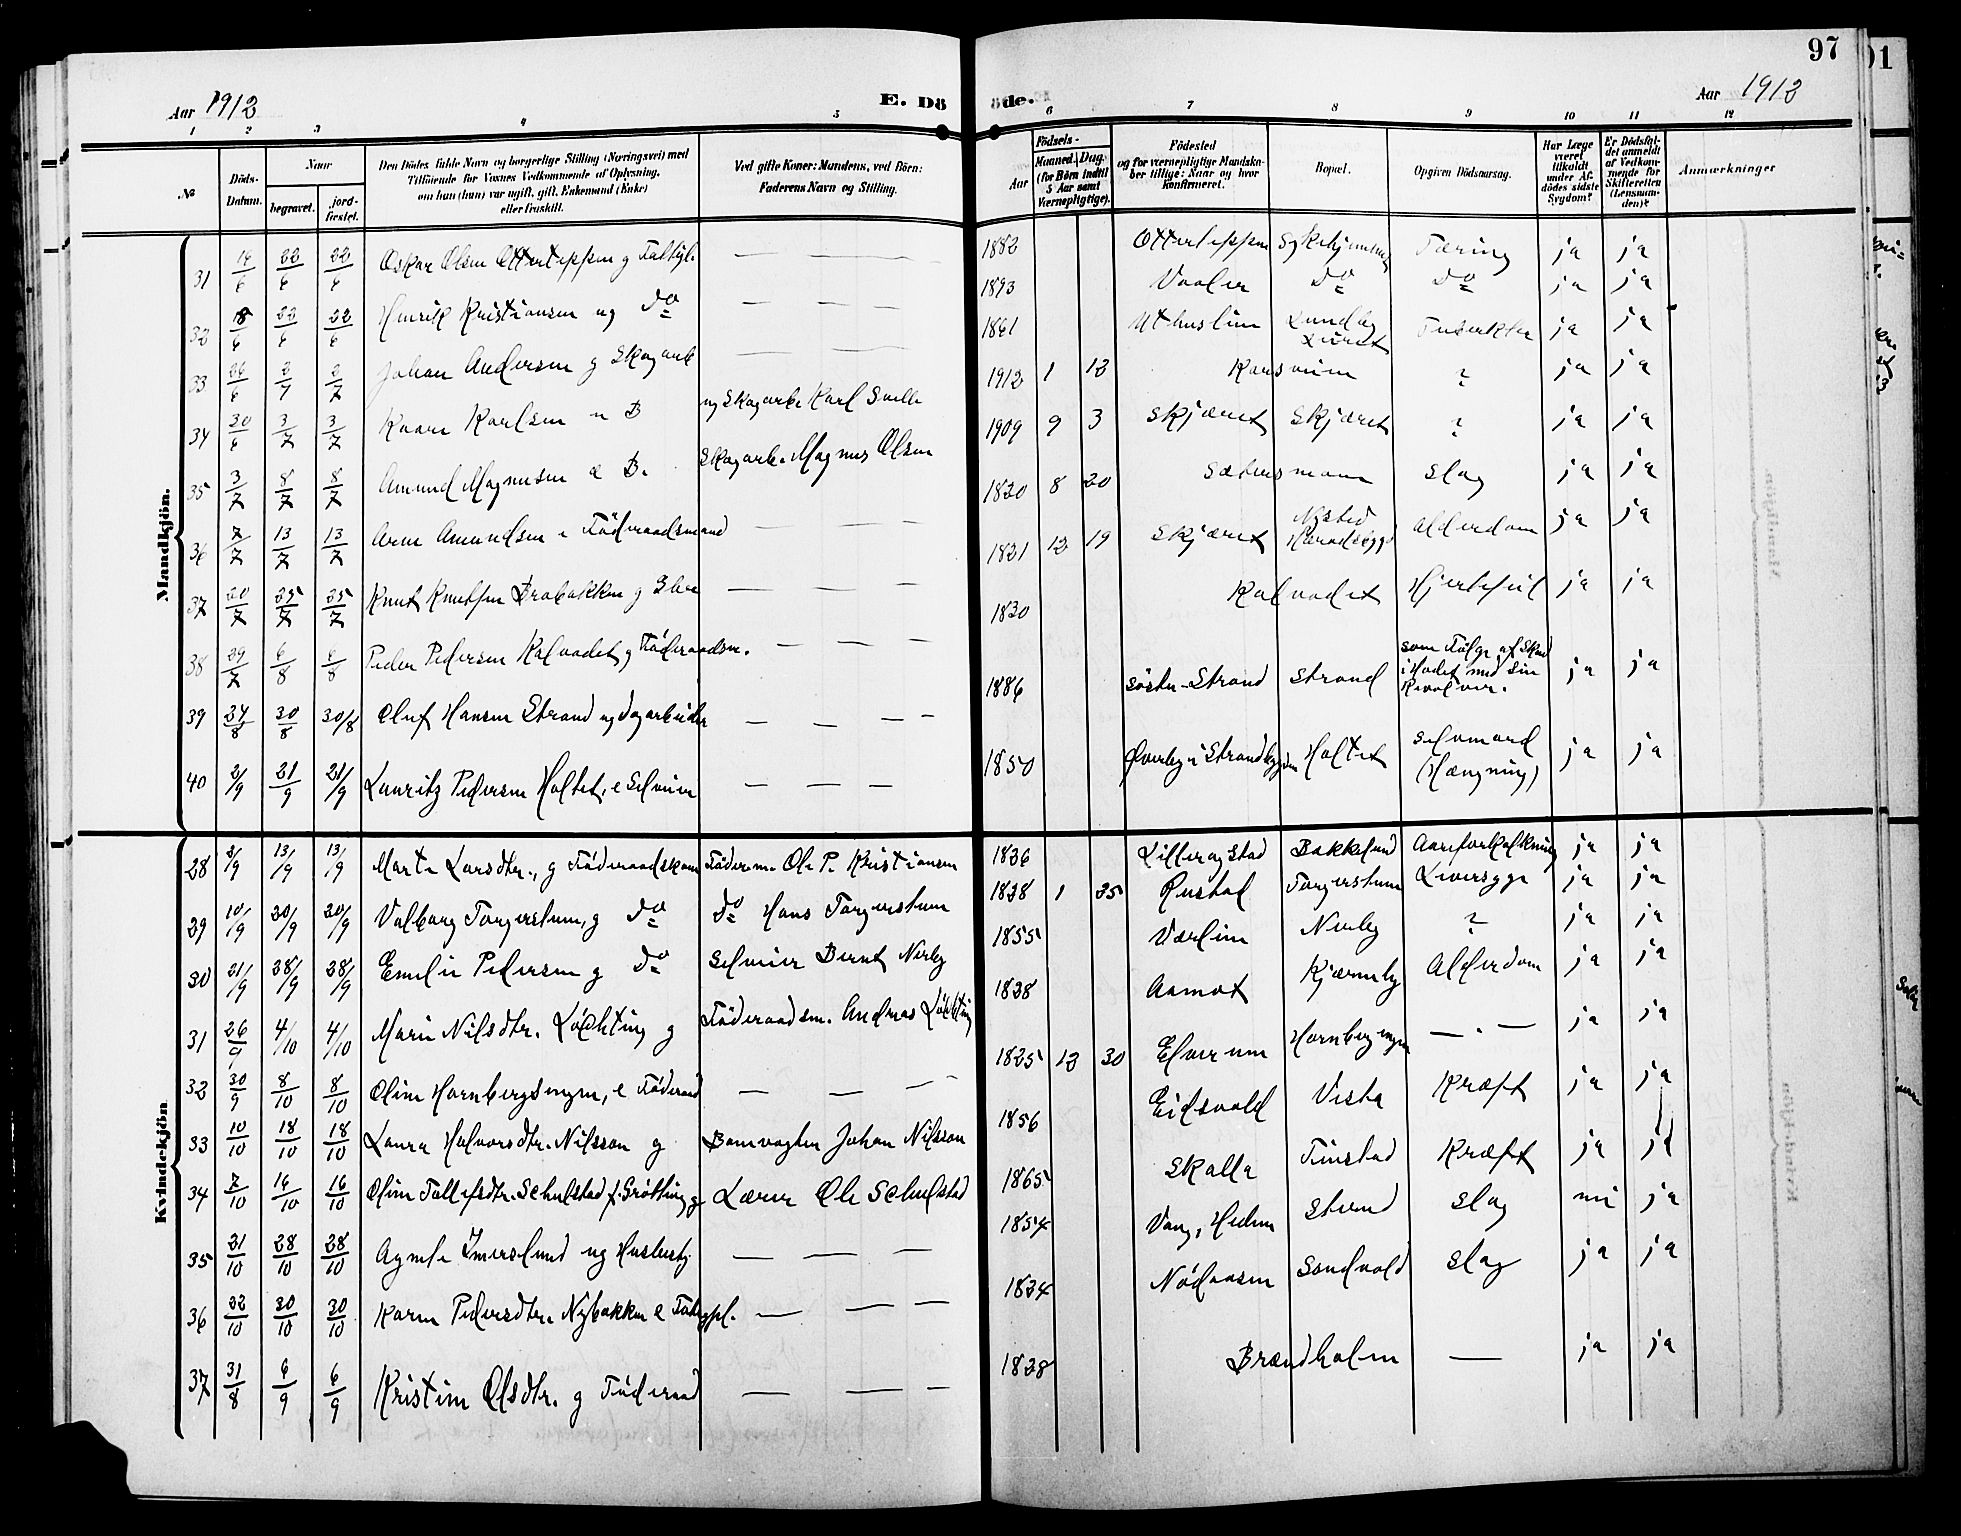 97
Aar 1912
E. Döde.
Aar 1912
1 2 3 4 5 6 7 8 9 10 11 12
№
Döds-Datum.
Naar
begravet.
jord-festet.
Den Dödes fulde Navn og borgerlige Stilling (Næringsvei) med
Tilföiende for Voxnes Vedkommende af Oplysning,
om han (hun) var ugift, gift, Enkemand (Enke)
eller fraskilt.
Ved gifte Koner: Mandens, ved Börn:
Faderens Navn og Stilling.
Födsels-
Aar
Maaned. Dag.
(for Börn indtil
5 Aar samt
Værnepligtige).
Födested
og for værnepligtige Mandska-
ber tillige: Naar og hvor
konfirmeret.
Bopæl.
Opgiven Dödsaarsag.
Har Læge
været
tilkaldt
under Af-
dödes sidste
Sygdom?
Er Dödsfal-
det anmeldt
af Vedkom-
mende for
Skifteretten
(Lensman-
den)?
Anmærkninger
Mandkjön.
31 14/6 22/6 22/6 Oskar Olsen Ottertippen g — — — 1882 Ottertippen Sykehjemmet Tæring ja ja
32 18/6 22/6 22/6 Henrik Kristiansen ug do — — — 1893 Vaaler do do ja ja
33 26/6 2/7 2/7 Johan Andersen g Skogarb — — — 1861 Uthuslien Lundby ja ja
34 30/6 3/7 3/7 Kaare Karlsen u B ug Skogarb. Karl 1912 1 12 ? ja ja
35 3/7 8/7 8/7 Amund Magnusen e B. Skogarb. Magnus Olsen 1909 9 3 Skjæret Skjæret ? ja ja
36 7/7 13/7 13/7 Arne Amundsen e Föderaadsmand — — — 1830 8 20 Sætersmoen Slag ja ja
37 20/7 25/7 25/7 Knut Knutsen Brobakken g — — — 1821 12 19 Skjæret Nysted Alderdom ja ja
38 29/7 6/8 6/8 Peder Pedersen Kalvadet g Föderaadsm. — — — 1830 Kalvadet Hjertefeil ja ja
39 24/8 30/8 30/8 Oluf Hansen Strand ug Dagarbeider — — — 1886 Söstu-Strand Strand som Fölge af Skud
i Hodet med sin
Revolver. ja ja
40 2/9 21/9 21/9 Lauritz Pedersen Holtet, e Selveier — — — 1850 Överby i Strandbygden Holtet Selvmord
(Hængning) ja ja
Kvindekjön
28 8/9 13/9 13/9 Marte Larsdtr., g Föderaadskone Föderm. Ole P. Kristiansen 1836 Lilleragstad Bakkelund Aareforkalkning ja ja
29 10/9 20/9 20/9 Valborg Torgerstuen, g do do Hans Torgerstuen 1838 1 25 Rustad Torgerstuen Leversyge ja ja
30 21/9 28/9 28/9 Emelie Pedersen g do Selveier Bernt Nerby 1855 Værlien Nerby ? ja ja
31 26/9 4/10 4/10 Marie Nilsdtr. Löchting g Föderaadsm. Andreas Löchting 1838 Aamot Kjærneby Alderdom ja ja
32 30/9 8/10 8/10 Oline Hornbergsengen, e Föderaad — — — 1825 12 30 Elverum Hornbergengen — „ — ja ja
33 10/10 18/10 18/10 Laura Halvorsdtr. Nilsson g Banevogter Johan Nilsson 1856 Eidsvold Vesta Kræft ja ja
34 7/10 16/10 16/10 Oline Tollefsdtr. Schulstad f. Grötting g Lærer Ole Schulstad 1865 Skalla Finstad Kræft ja ja
35 21/10 28/10 28/10 Agnete Imerslund ug — — — 1854 Vang, Hedem Slag nei ja
36 22/10 30/10 30/10 Karen Pedersdtr. Nybakken e Fattigpl. — — — 1834 Nödaasen Sandvold Slag ja ja
37 31/8 6/9 6/9 Kristine Olsdtr. g Föderaad — — — 1838 Brændholen — ja ja